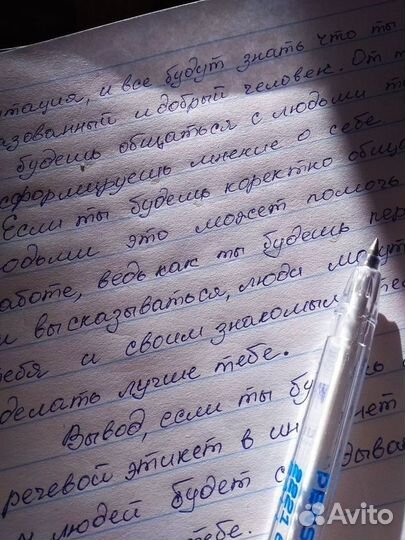 тация, и все будут знать что ты
зованный и добрый человек. От т
будешь общаться с людьми т
сформируешь мнение о себе.
Если ты будешь коректно обща
юдьми это может помочь
аботе, ведь как ты будешь пер
и высказываться, люди могут
ебя и своим знакомым
делать лучше тебе.
Вывод, если ты бу
речевой этикет в ин нет
людей будет с дыва
тебе.
Avito